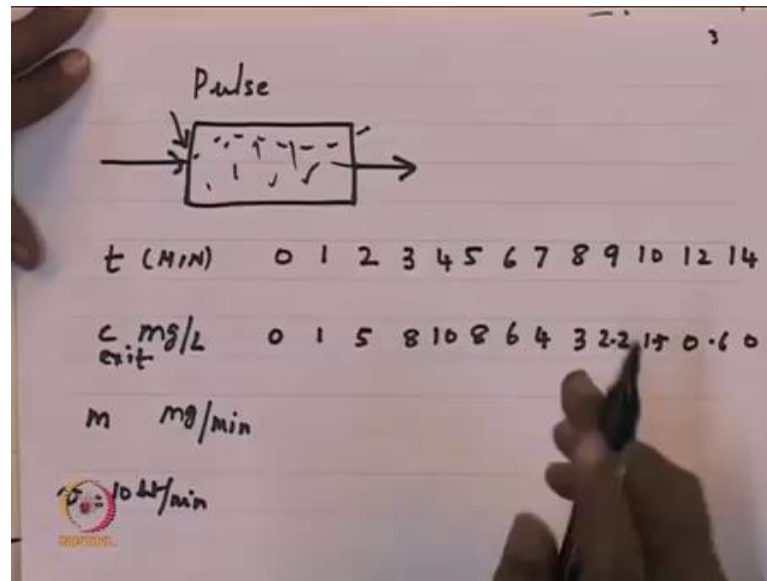 3
Pulse
t (MIN) 0 1 2 3 4 5 6 7 8 9 10 12 14
c mg/L 0 1 5 8 10 8 6 4 3 2.2 1.5 0.6 0
exit
m mg/min
10 lit/min